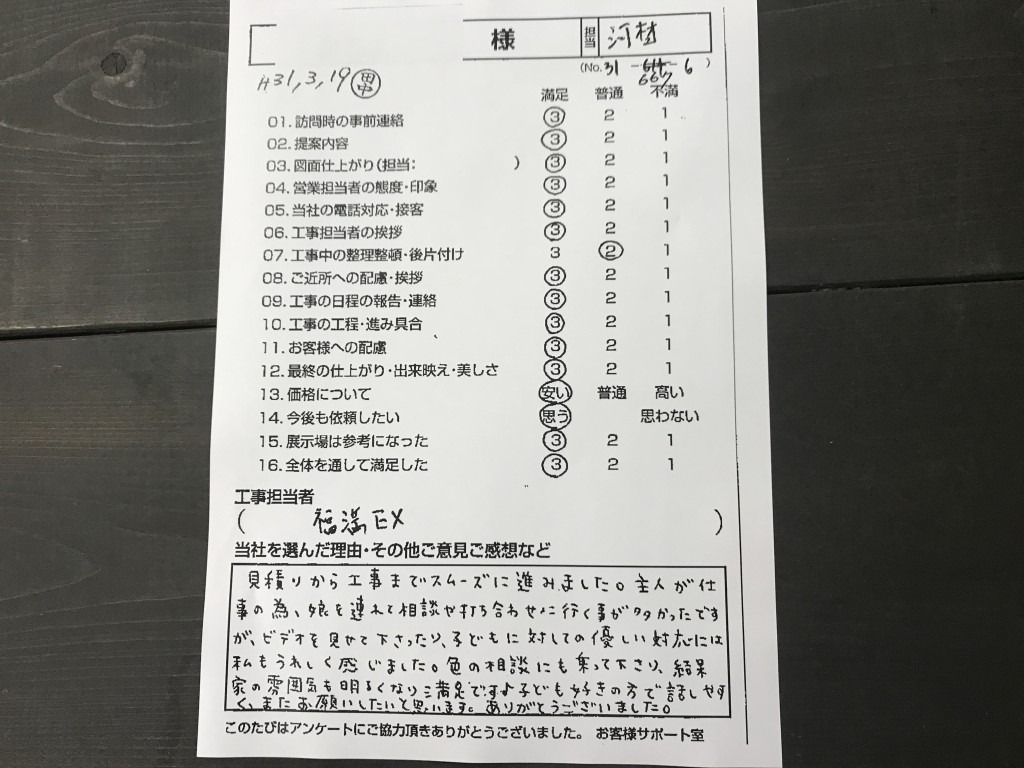 様 担当 河村
H31,3,19 (No.31 6
667
満足 普通 不満
01.訪問時の事前連絡 3 2 1
02.提案内容 3 2 1
03.図面仕上がり(担当: ) 3 2 1
04.営業担当者の態度・印象 3 2 1
05.当社の電話対応・接客 3 2 1
06.工事担当者の挨拶 3 2 1
07.工事中の整理整頓・後片付け 3 2 1
08.ご近所への配慮・挨拶 3 2 1
09.工事の日程の報告・連絡 3 2 1
10.工事の工程・進み具合 3 2 1
11.お客様への配慮 3 2 1
12.最終の仕上がり・出来映え・美しさ 3 2 1
13.価格について 安い 普通 高い
14.今後も依頼したい 思う 思わない
15.展示場は参考になった 3 2 1
16.全体を通して満足した 3 2 1
工事担当者
( 福満EX )
当社を選んだ理由・その他ご意見ご感想など
見積りから工事までスムーズに進みました。主人が仕
事の為、娘を連れて相談や打ち合わせに行く事が多かったです
が、ビデオを見せて下さったり、子どもに対しての優しい対応には
私もうれしく感じました。色の相談にも乗って下さり、結果
家の雰囲気も明るくなり満足です♪子ども好きの方で話しやす
く、またお願いしたいと思います。ありがとうございました。
このたびはアンケートにご協力頂きありがとうございました。 お客様サポート室